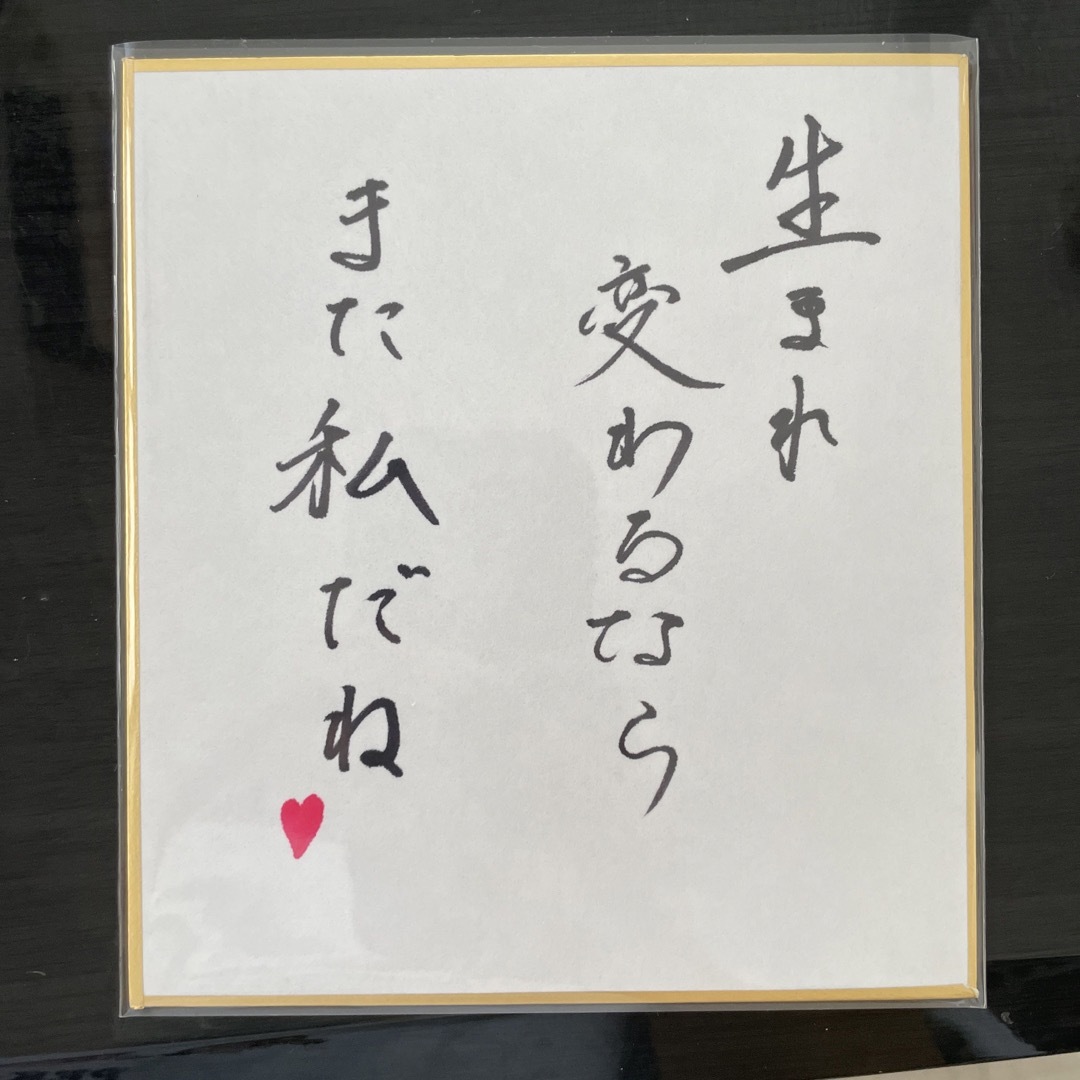 生まれ
変わるなら
また私だね